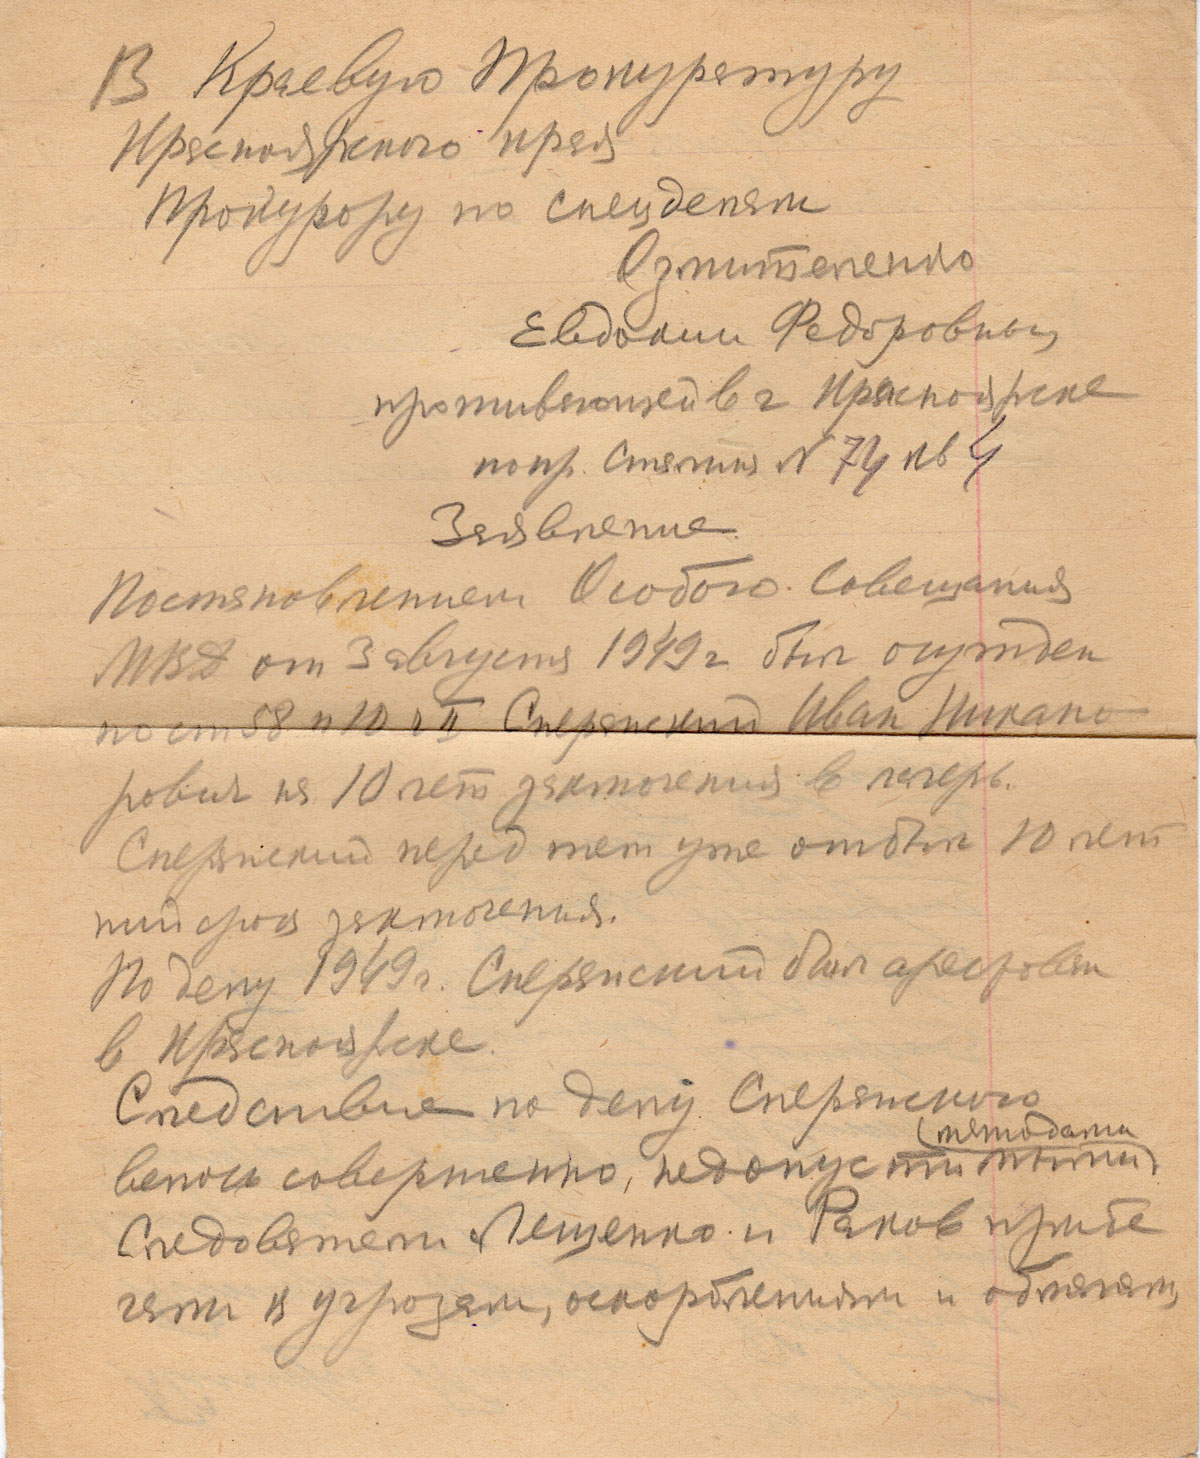 В Краевую Прокуратуру
Красноярского края
Прокурору по спецделам
Озмителенко
Евдокии Федоровны,
проживающей в г Красноярске
по пр. Сталина N 74 кв 4
Заявление
Постановлением Особого Совещания
МВД от 3 августа 1949 г был осужден
по ст 58 п 10 ч II Сперанский Иван Никано
рович на 10 лет заключения в лагерь.
Сперанский перед тем уже отбыл 10 лет
ний срок заключения.
По делу 1949 г. Сперанский был арестован
в Красноярске.
Следствие по делу Сперанского
методами
велось совершенно, недопустимыми
Следователи Лещенко и Раков прибе
гали к угрозам, оскорблениям и